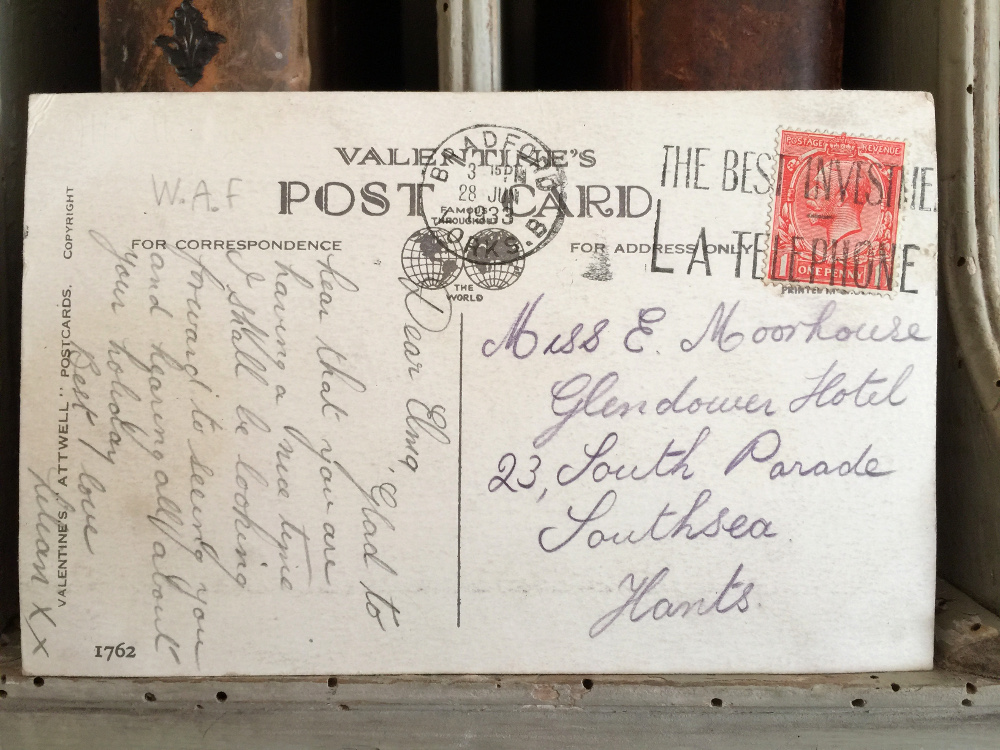 VALENTINE'S
POST CARD
FAMOUS
THROUGHOUT
THE
WORLD
FOR CORRESPONDENCE
FOR ADDRESS ONLY
W.A.F
BRADFORD
3 15 PM
28 JUN
1933
YORKS.
THE BEST INVESTME
A TELEPHONE
POSTAGE REVENUE
ONE PENNY
PRINTED
Dear Elma, Glad to
hear that you are
having a nice time
I shall be looking
forward to seeing you
and hearing all about
your holiday
Best love
Lilian XX
Miss E. Moorhouse
Glendower Hotel
23, South Parade
Southsea
Hants.
VALENTINE'S "ATTWELL" POSTCARDS. COPYRIGHT
1762